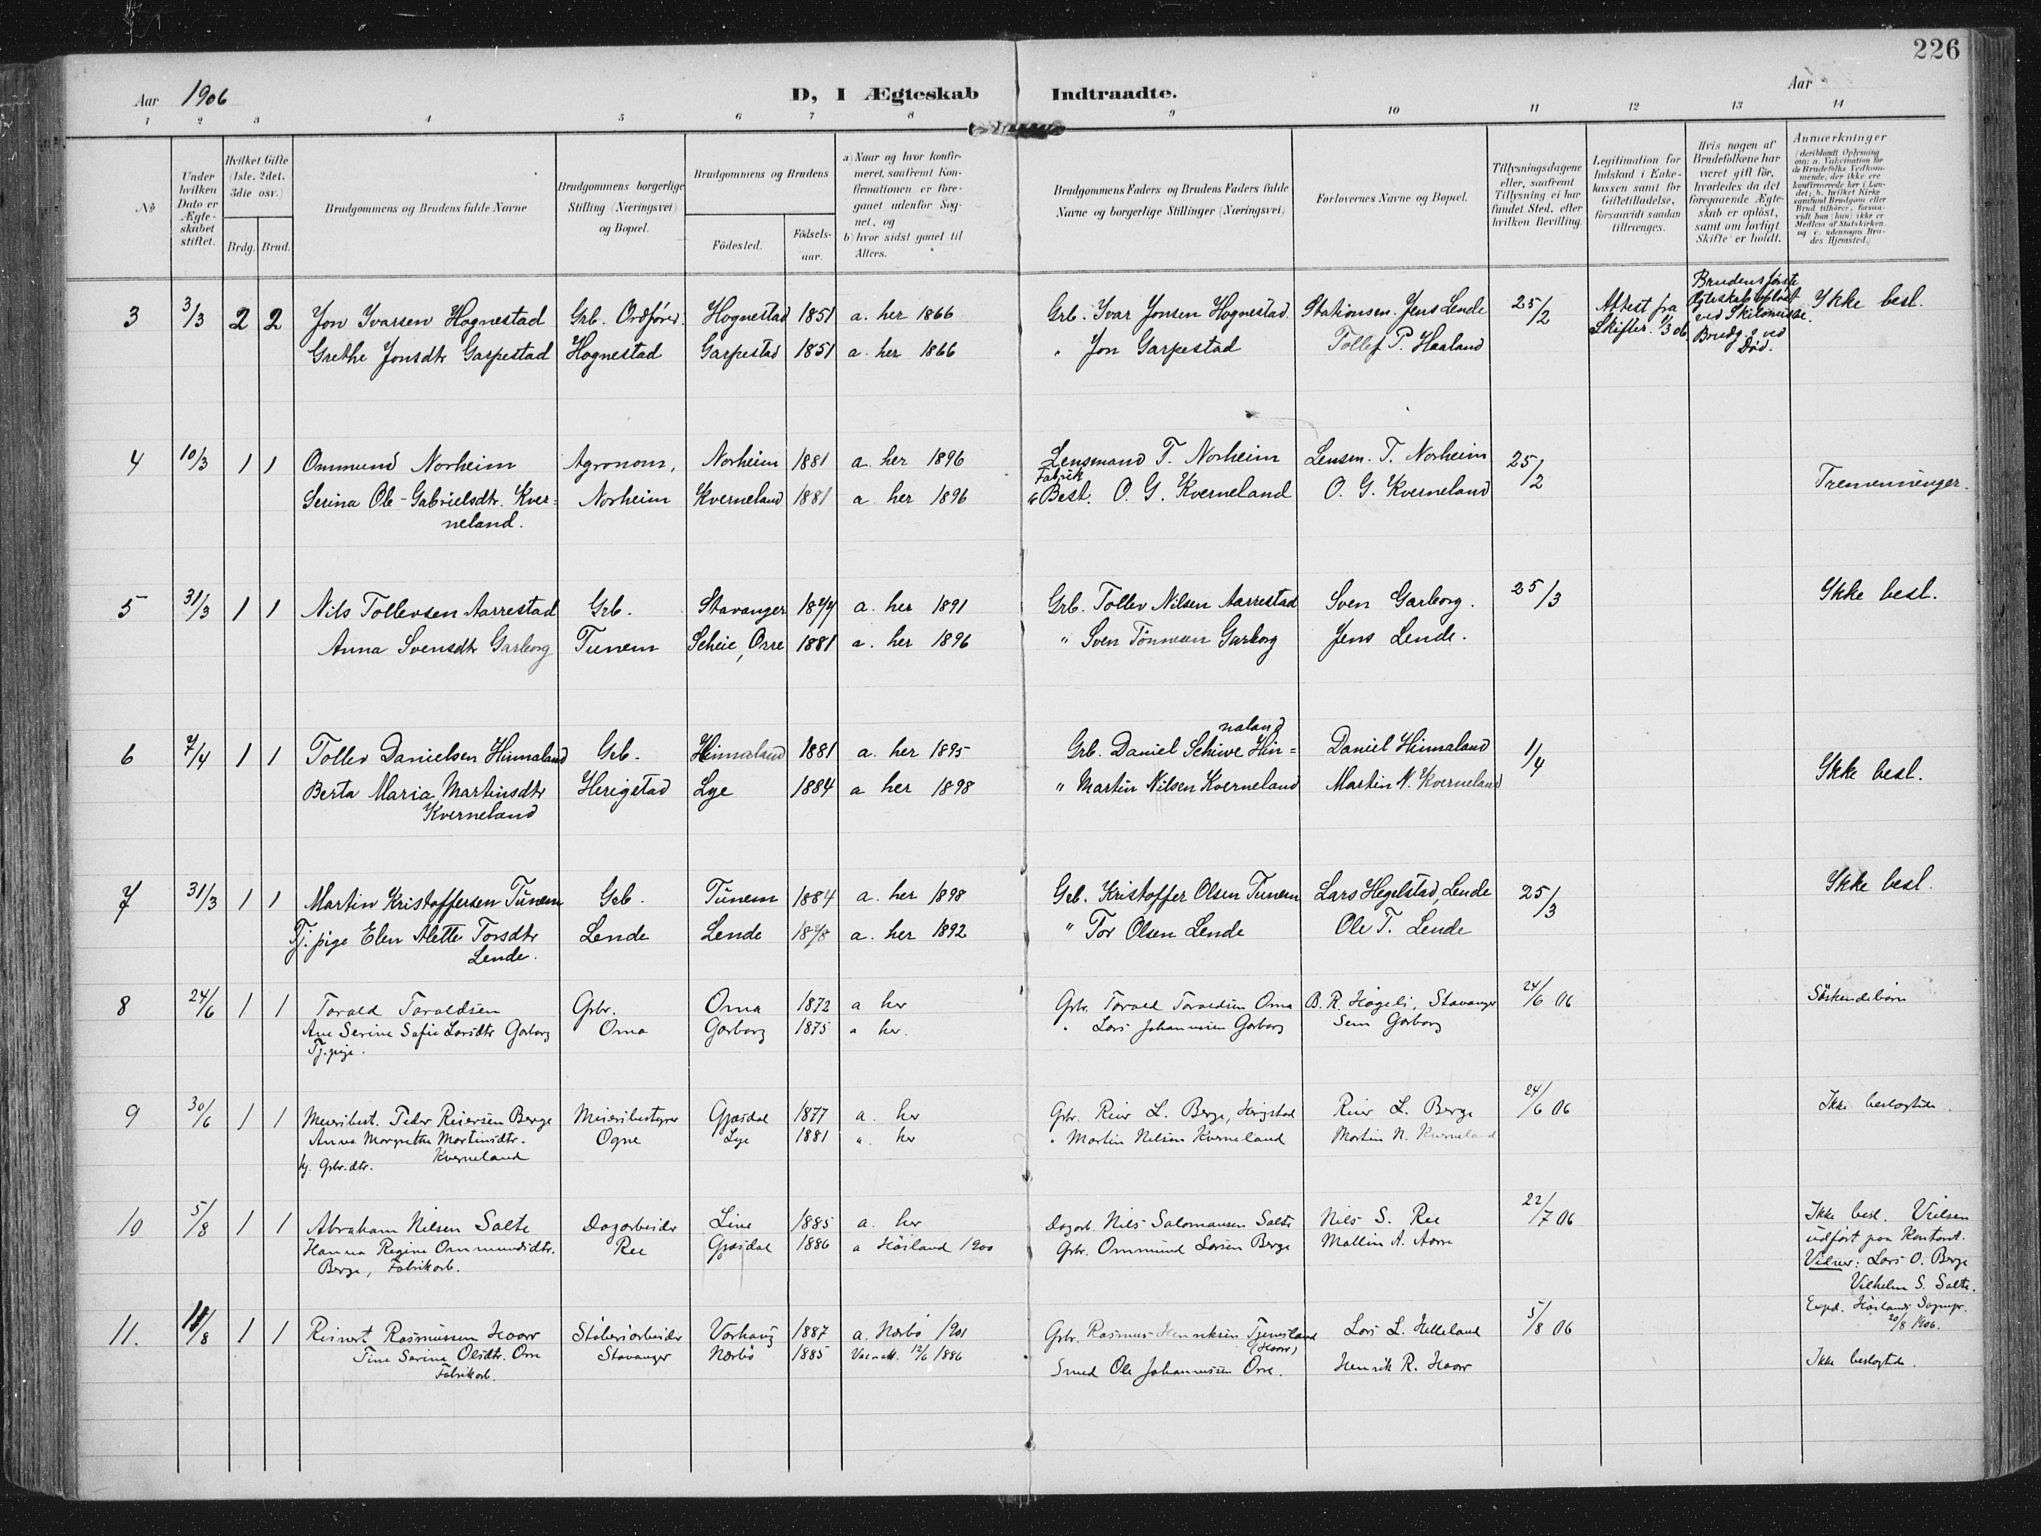 226
Aar 1906
D, I Ægteskab Indtraadte.
Aar
1 2 3 4 5 6 7 8 9 10 11 12 13 14
№
Under hvilken Dato er Ægteskabet stiftet.
Hvilket Gifte (1ste, 2det, 3die osv.)
Brdg. Brud.
Brudgommens og Brudens fulde Navne
Brudgommens borgerlige Stilling (Næringsvei) og Bopæl.
Brudgommens og Brudens
Fødested.
Fødselsaar.
a) Naar og hvor konfirmeret, saafremt Konfirmationen er foregaaet udenfor Sognet, og
b) hvor sidst gaaet til Alters.
Brudgommens Faders og Brudens Faders fulde Navne og borgerlige Stillinger (Næringsvei)
Forlovernes Navne og Bopæl.
Tillysningsdagene eller, saafremt Tillysning ei har fundet Sted, efter hvilken Bevilling.
Legitimation for Indskud i Enkekassen samt for Giftetilladelse, forsaavidt saadan tiltrænges.
Hvis nogen af Brudefolkene har været gift før, hvorledes da det foregaaende Ægteskab er opløst, samt om lovligt Skifte er holdt.
Anmærkninger
(deriblandt Oplysning om: a. Vakcination for de Brudefolks Vedkommende, der ikke ere konfirmerede her i Landet; b. hvilket Kirkesamfund Brudgom eller Brud tilhører, forsaavidt han (hun) ikke er Medlem af Statskirken, og c. udensogns Brudes Hjemsted.)
3 3/3 2 2 Jon Ivarsen Hognestad Grb. Ordfører. Hognestad 1851 a. her 1866 Grb. Ivar Jonsen Hognestad Stationsm. Jens Lende 25/2 Attest fra Skifter. 1/3 06. Brudens første Ægteskab opløst ved Skilsmisse. Brudg. 2 ved Død. Ikke besl.
Grethe Jonsdtr Gaspestad Hognestad Garpestad 1851 a. her 1866 " Jon Garpestad Tollef P. Haaland
4 10/3 1 1 Ommund Norheim Agronom, Norheim 1881 a. her 1896 Lensmand T. Norheim Lensm. T. Norheim 25/2
Serina Ole-Gabrielsdtr. Kverneland. Norheim Kverneland 1881 a. her 1896 Fabrik Best. O. G. Kverneland O. G. Kverneland Tremenninger.
5 31/3 1 1 Nils Tollevsen Aarrestad Grb. Stavanger 1877 a. her 1891 Grb. Tollev Nilsen Aarrestad Sven Garborg. 25/3 Ikke besl.
Anna Svensdtr Garborg Tunem Scheie, Orre 1881 a. her 1896 " Sven Tønnesen Garborg Jens Lende.
6 7/4 1 1 Tollev Danielsen Hinnaland Grb. Hinnaland 1881 a. her 1895 Grb. Daniel Schive Hinnaland Daniel Hinnaland 1/4
Berta Maria Martinsdtr Kverneland Herigstad Lye 1884 a her 1898 " Martin Nilsen Kverneland Martin N. Kverneland Ikke besl.
7 31/3 1 1 Martin Kristoffersen Tunem Grb. Tunem 1884 a. her 1898 Grb. Kristoffer Olsen Tunem Lars Hegelstad, Lende 25/3 Ikke besl.
Tj. pige Elen Alette Torsdtr Lende. Lende Lende 1878 a. her 1892 " Tor Olsen Lende Ole T. Lende
8 24/6 1 1 Torald Toraldsen Grbr. Oma 1872 a her Grbr. Torald Toraldsen Oma B. R. Høgeli, Stavanger 24/6 06 Söskendebörn
Ane Serine Sofie Larsdtr Garborg Oma Garborg 1875 " her. " Lars Johannesen Garborg Sem Garborg
Tj.pige.
9 30/6 1 1 Meieribest. Peder Reiersen Berge Meieribestyrer Gjæsdal 1877 a. her Grbr. Reier L. Berge, Herigstad Reier L. Berge 24/6 06 Ikke beslægtede.
Anna Margrethe Martinsdtr. Kverneland Ogne Lye 1881 " her " Martin Nilsen Kverneland Martin N. Kverneland
kg. Grbr.dtr.
10 5/8 1 1 Abraham Nilsen Salte Dagarbeider Line 1885 a. her Dagarb. Nils Salomonsen Salte Nils S. Ree 22/7 06 Ikke besl. Vielsen udført paa Kontoret.
Hanna Regine Ommundsdtr. Berge, Fabrikarb. Ree Gjæsdal 1886 a Høiland 1900 Grbr. Ommund Larsen Berge Mallin A. Aarre Vidner: Lars O. Berge
Vilhelm S. Salte.
Exped. Høilands Sognepr. 20/8 1906.
11. 11/8 1 1 Reinert Rasmussen Haarr Støberiarbeider Varhaug 1887 a. Nærbø 1901 Grbr. Rasmus Henriksen Tjemsland (Haarr) Lars L. Helleland 5/8 06
Tine Serine Olsdtr. Orre Fabrikarb. Stavanger Nærbø 1885 Vacc.att. 12/6 1886 Smed Ole Johannessen Orre. Henrik R. Haarr Ikke beslægtede.